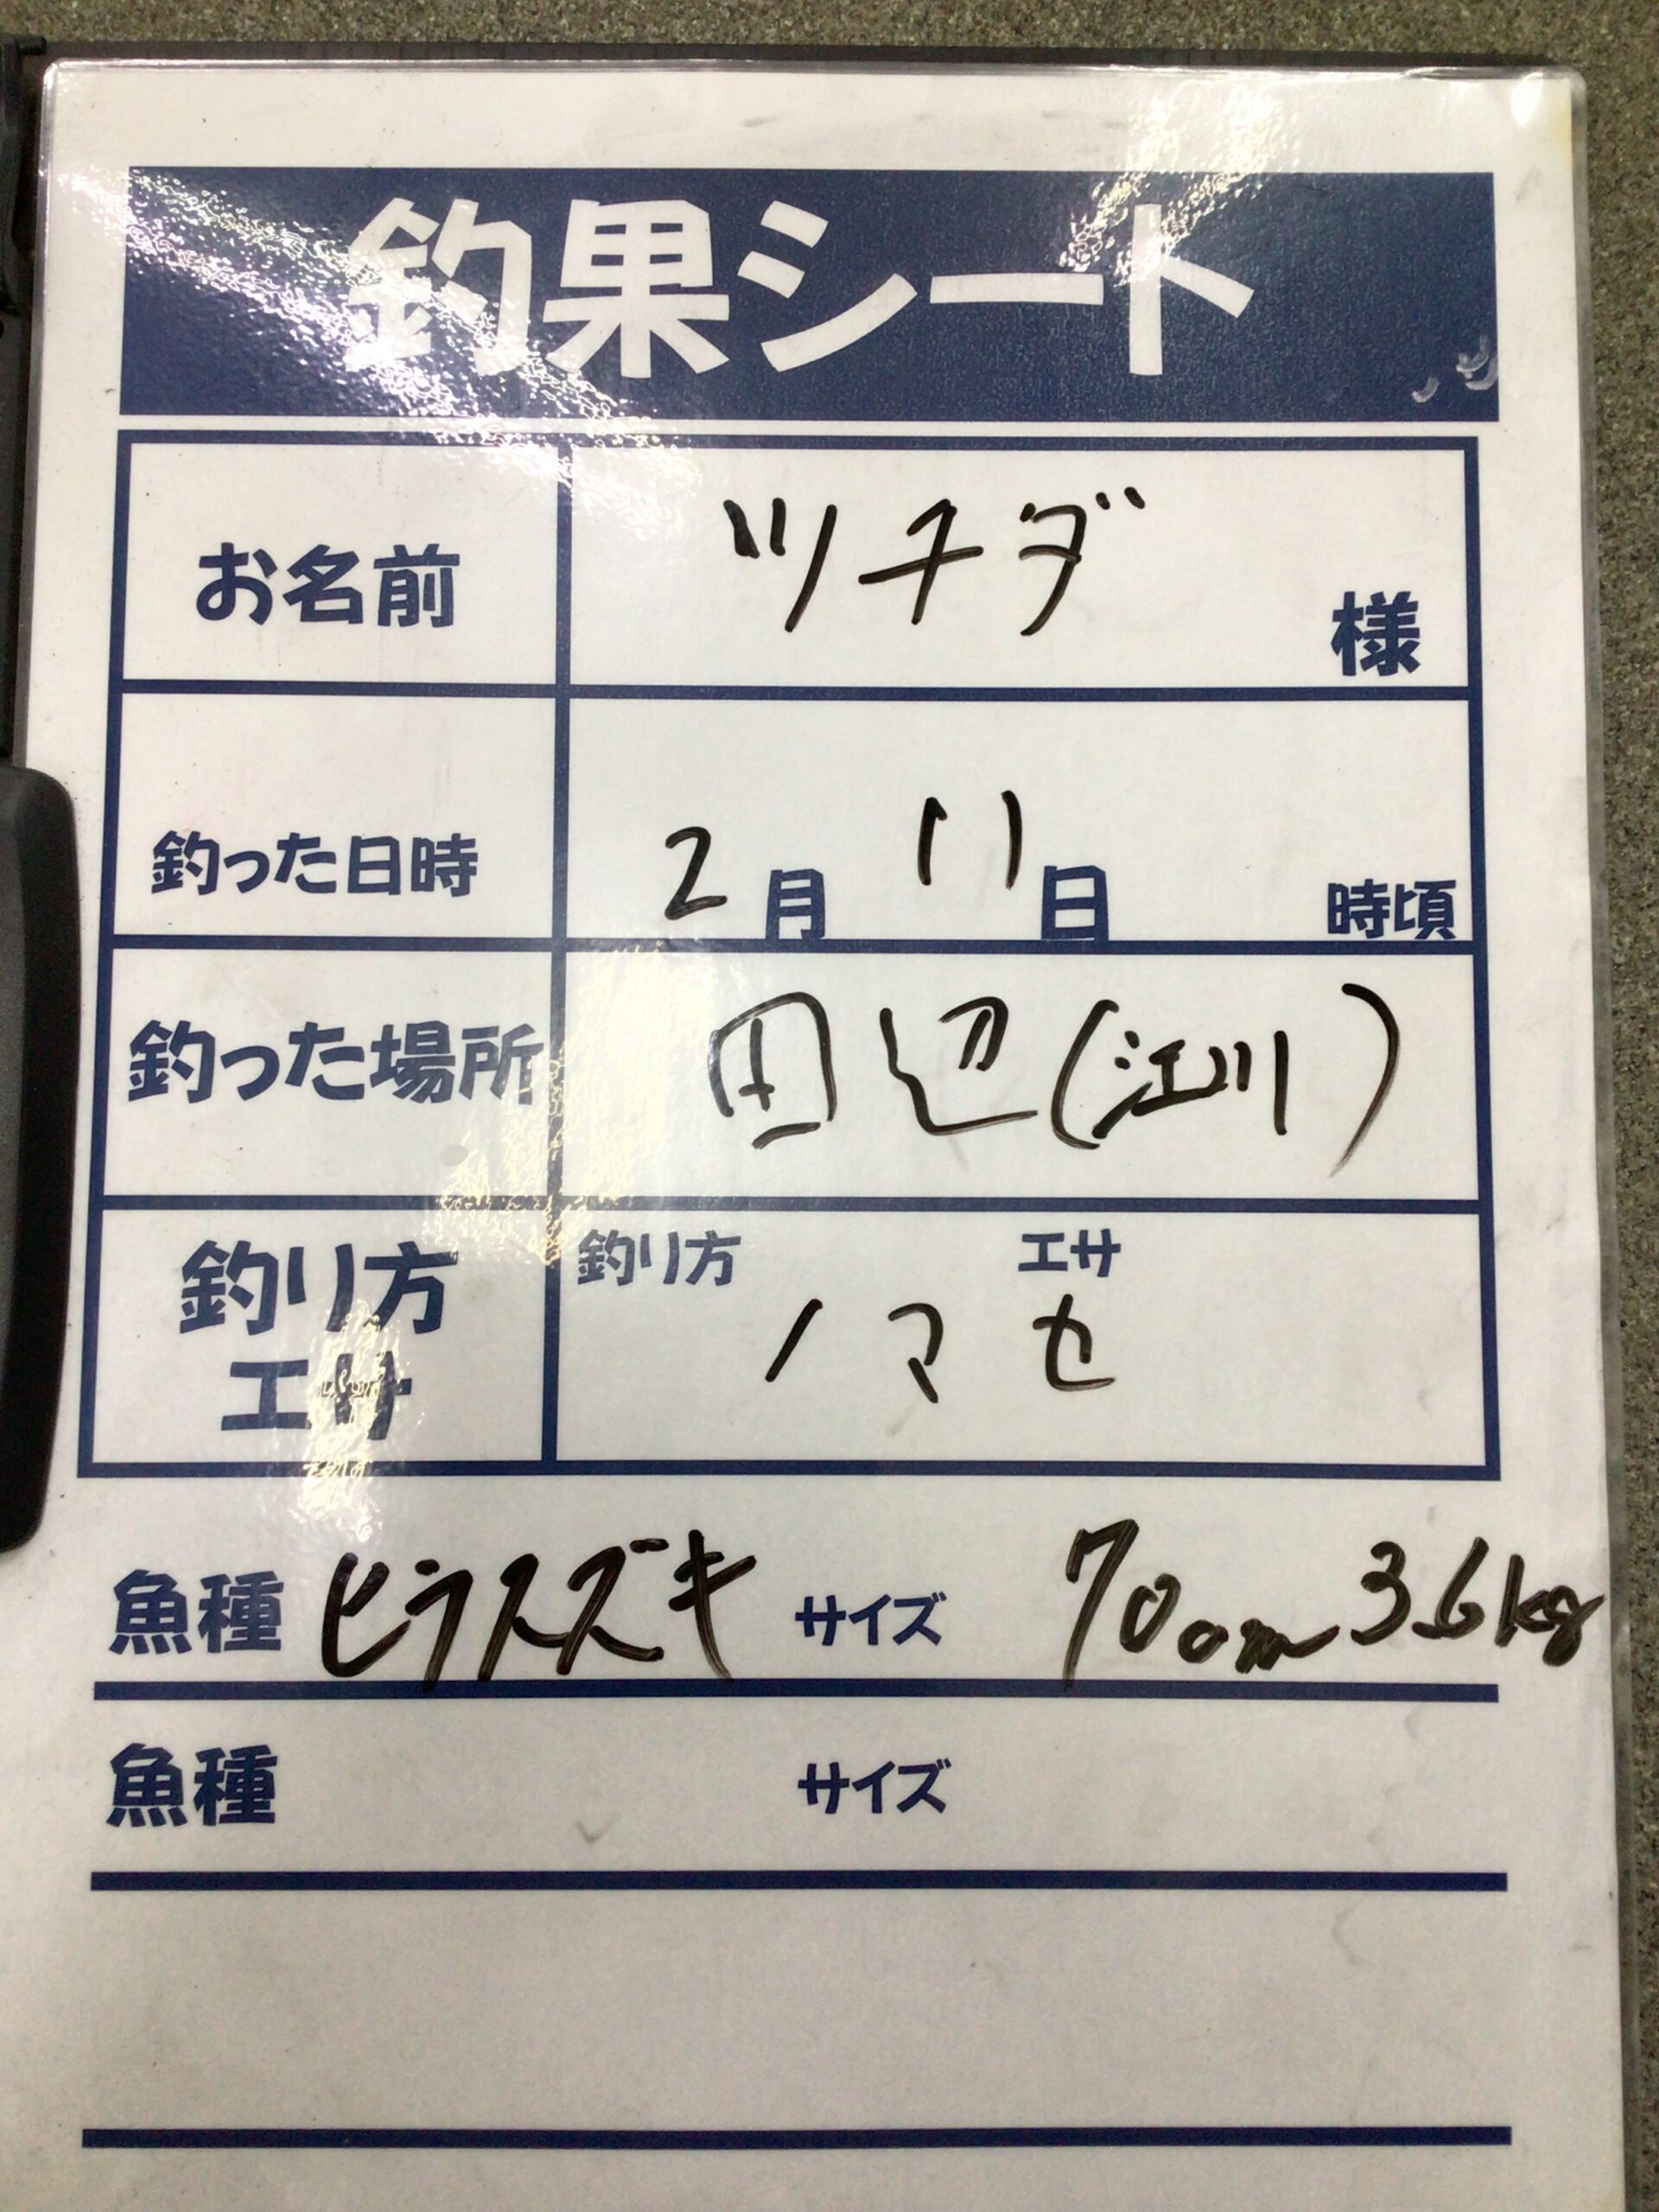 釣果シート
お名前 ツチダ 様
釣った日時 2月 11日 時頃
釣った場所 田辺(江川)
釣り方 エサ
釣り方 エサ
ノマセ
魚種 ヒラスズキ サイズ 70cm 3.6kg
魚種 サイズ